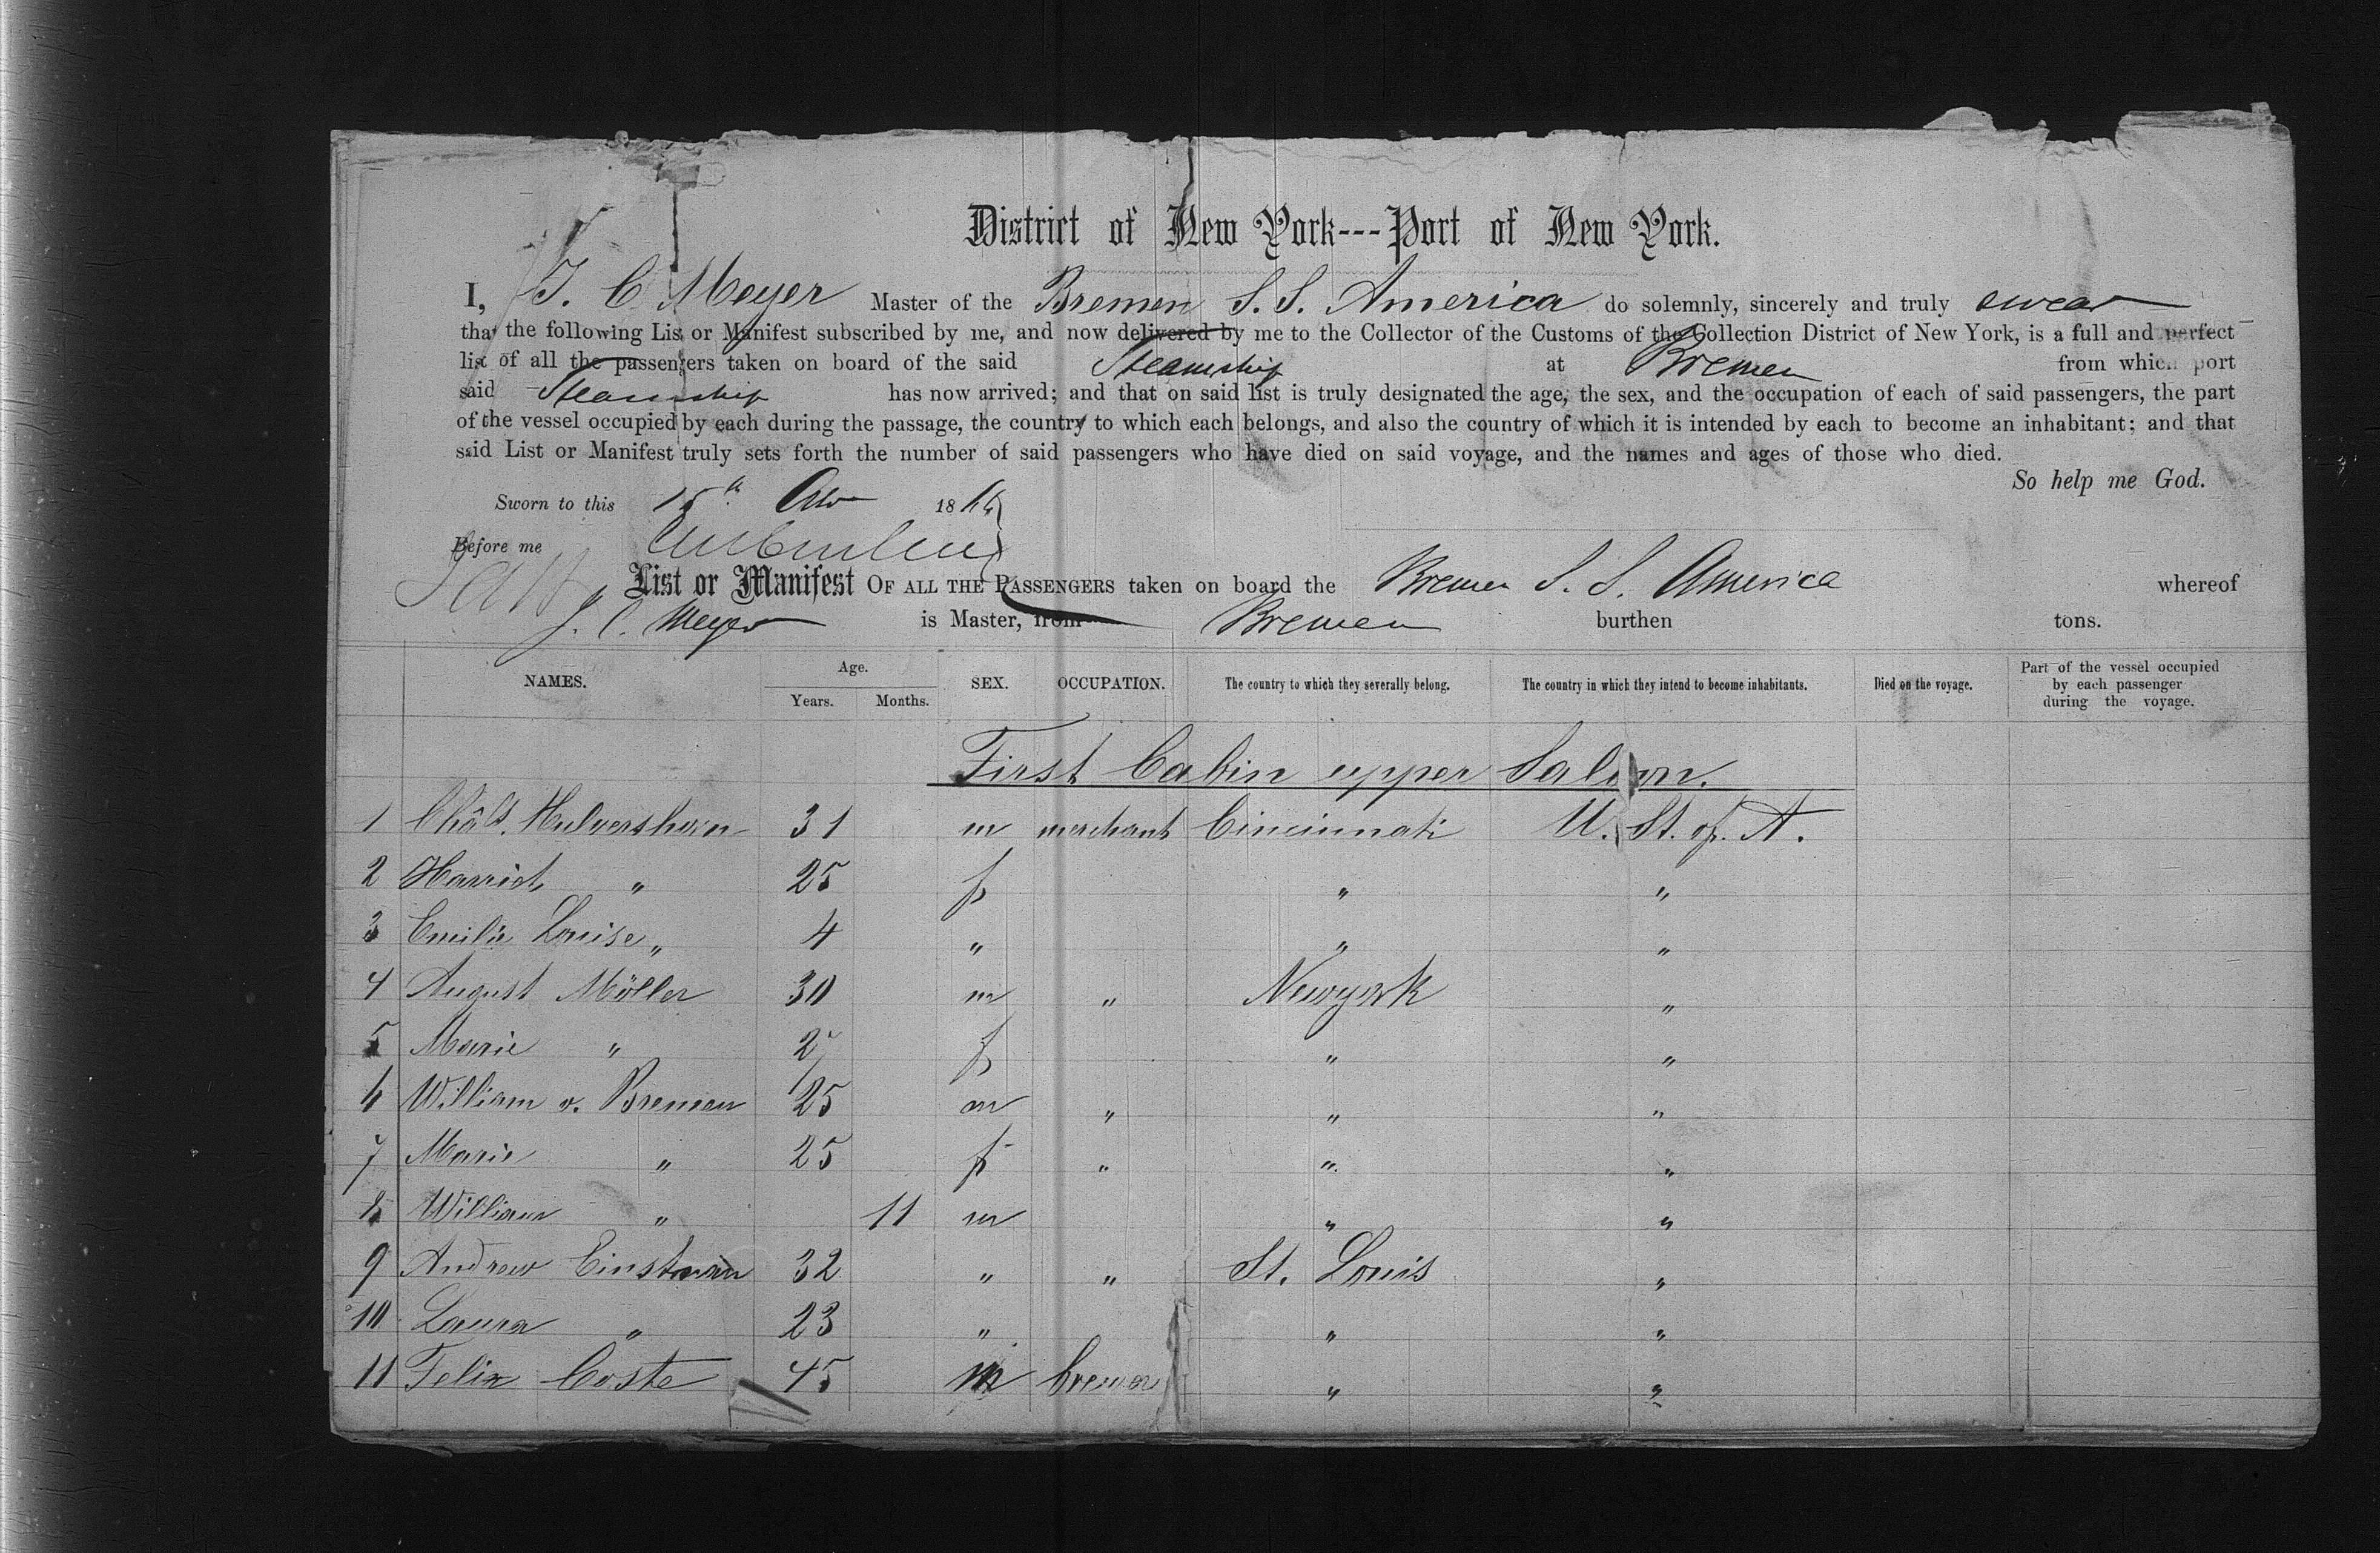 District of New York---Port of New York.
I, J. C. Meyer Master of the Bremen S. S. America do solemnly, sincerely and truly swear
that the following List or Manifest subscribed by me, and now delivered by me to the Collector of the Customs of the Collection District of New York, is a full and perfect
list of all the passengers taken on board of the said Steamship at Bremen from which port
said Steamship has now arrived; and that on said list is truly designated the age, the sex, and the occupation of each of said passengers, the part
of the vessel occupied by each during the passage, the country to which each belongs, and also the country of which it is intended by each to become an inhabitant; and that
said List or Manifest truly sets forth the number of said passengers who have died on said voyage, and the names and ages of those who died.
So help me God.
Sworn to this 15th 18
Before me
List or Manifest OF ALL THE PASSENGERS taken on board the Bremen S. S. America whereof
J. C. Meyer is Master, from Bremen burthen tons.
NAMES. Age. Years. Months. SEX. OCCUPATION. The country to which they severally belong. The country in which they intend to become inhabitants. Died on the voyage. Part of the vessel occupied by each passenger during the voyage.
First Cabin upper Saloon.
1 Châls. Hulvershorn 31 m merchant Cincinnati U. St. of. A.
2 Harriet " 25 f " "
3 Emilie Louise " 4 " " "
4 August Möller 30 m " Newyork "
5 Marie " 27 f " "
6 William v. Bremen 25 m " " "
7 Marie " 25 f " " "
8 William " 11 m " "
9 Andrew Einstman 32 " " St. Louis "
10 Laura " 23 " " "
11 Felix Coste 45 m brewer " "